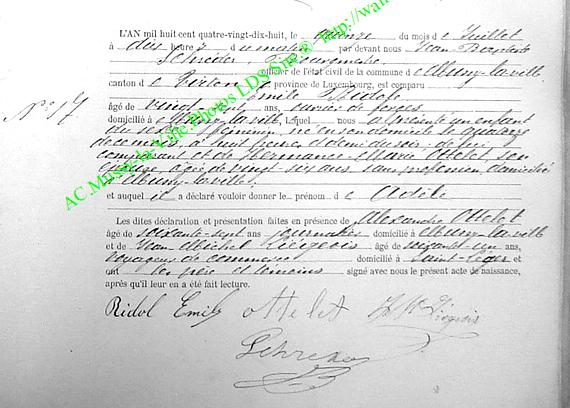 L'AN mil huit cent quatre-vingt-dix-huit, le quinze du mois d e Juillet
à dix heure s du matin par devant nous Jean Baptiste
Schréder, Bourgmestre
officier de l'état civil de la commune d e Mussy-la-ville
canton d e Virton province de Luxembourg, est comparu
Emile Ridol
âgé de vingt ans, ouvrier de forges
domicilié à Mussy-la-ville, lequel nous a présenté un enfant
du sexe féminin, né en son domicile le quinze
de ce mois, à huit heures et demi du soir, de lui
comparant et de Hermance Marie Ottelet, son
épouse âgée de vingt six ans, sans profession domiciliée
à Mussy-la-ville,
et auquel il a déclaré vouloir donner le prénom d e Adèle
Les dites déclaration et présentation faites en présence de Alexandre Ottelet
âgé de soixante-sept ans, journalier domicilié à Mussy-la-ville
et de Jean Michel Liégeois âgé de soixante-un ans,
voyageur de commerce domicilié à Saint-Léger et
ont les père et témoins signé avec nous le présent acte de naissance,
après qu'il leur en a été fait lecture.
N° 17
Ridol Emile ottelet J M Liegeois
Schréder
AC.Mussy-la-Ville.Photos LDS-Site ® http://wa